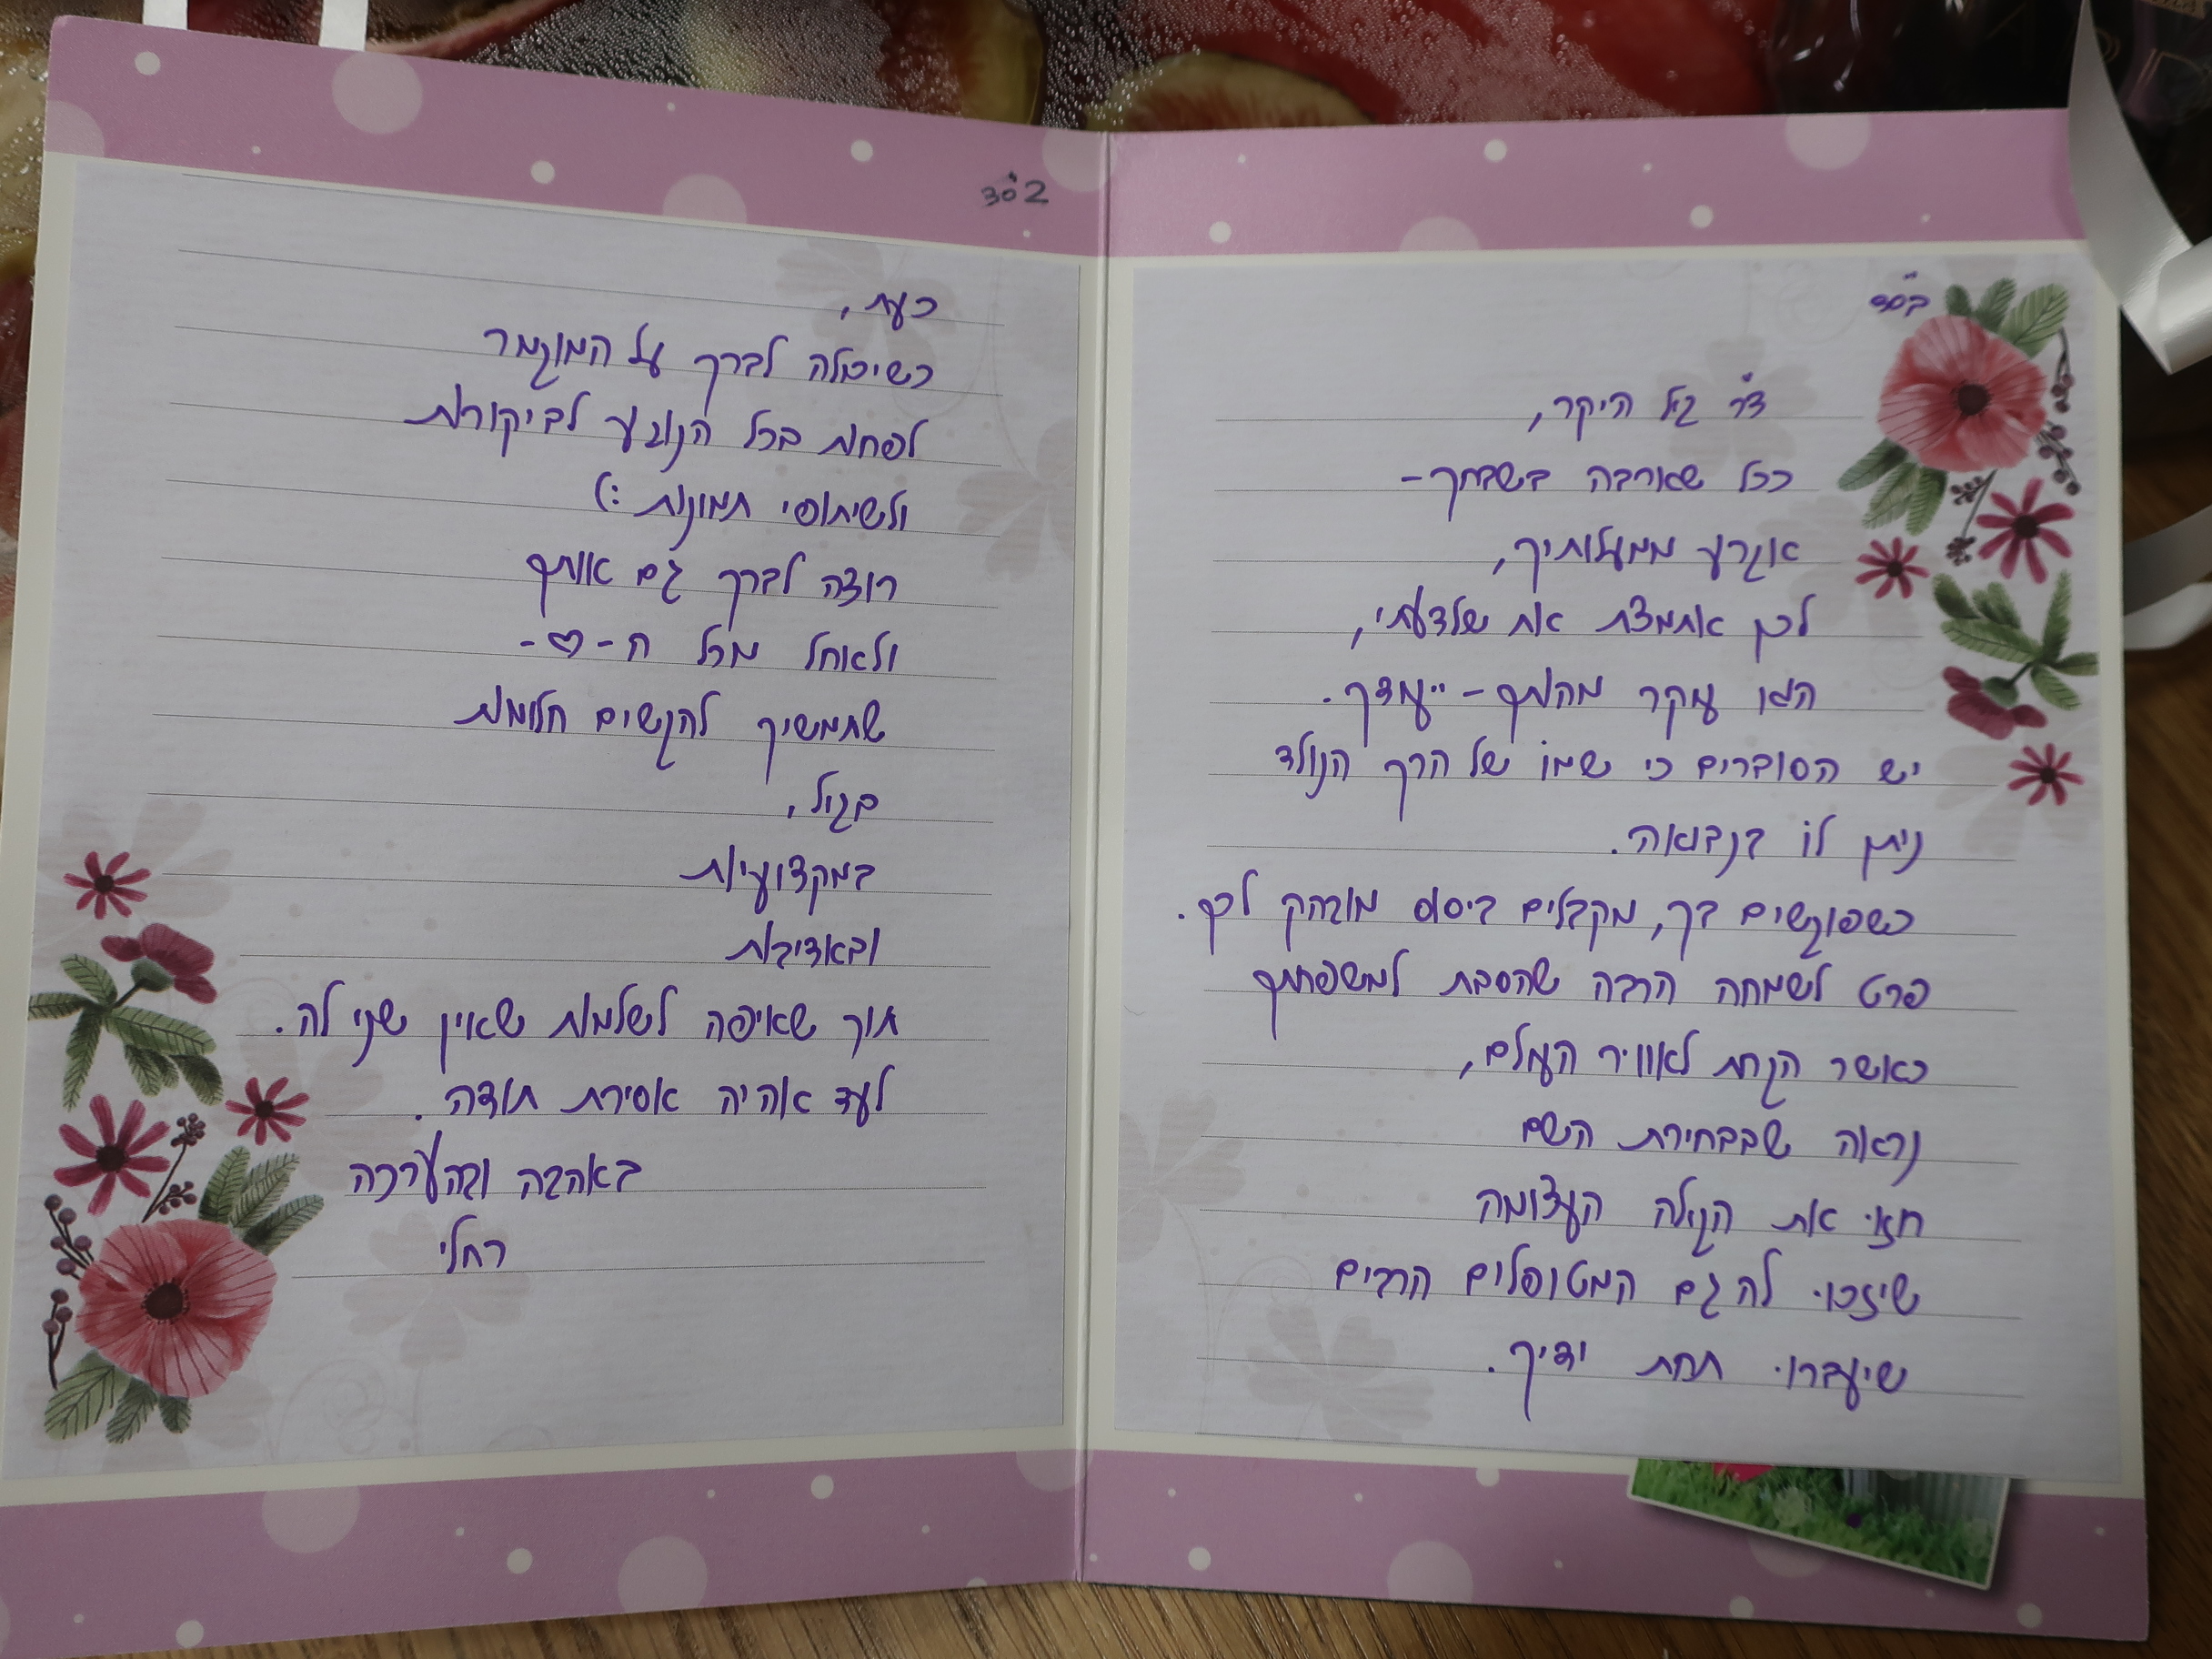 בס״ד
ד״ר גיל היקר,
ככל שארבה בשבחך-
אגרע ממעלותיך,
לכן אתמצת את שלדעתי,
הוא עיקר מהותך - ייעודך.
יש הסוברים כי שמו של הרך הנולד
ניתן לו בנבואה.
כשפוגשים בך, מקבלים ביסוס מובהק לכך.
פרט לשמחה הרבה שהסבת למשפחתך
כאשר הגחת לאוויר העולם,
נראה שבבחירת השם
חזו את הגילה העצומה
שיזכו לה גם המטופלים הרבים
שיעברו תחת ידיך.
302
כעת,
כשיכולה לברך על המוגמר
לפחות בכל הנוגע לביקורות
ולשיתופי תמונות :)
רוצה לברך גם אותך
ולאחל מכל ה-♡-
שתמשיך להגשים חלומות
בגיל,
במקצועיות
ובאדיבות
תוך שאיפה לשלמות שאין שני לה.
לעד אהיה אסירת תודה.
באהבה ובהערכה
רחלי